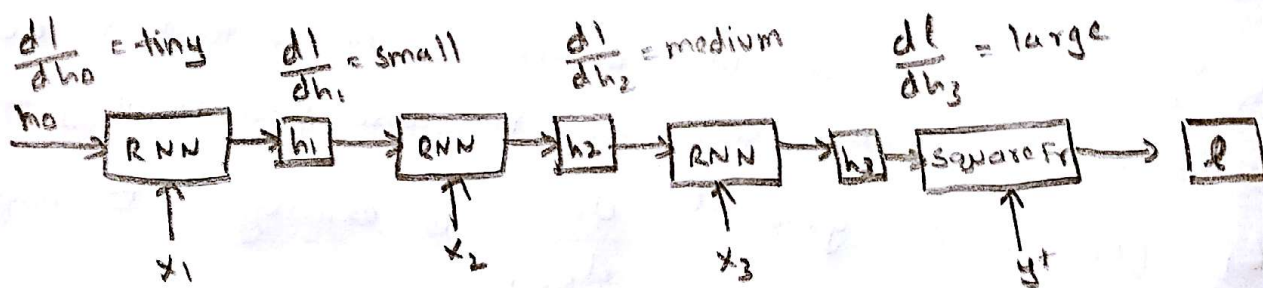 dl/dh0 = tiny dl/dh1 = small dl/dh2 = medium dl/dh3 = large
h0 RNN h1 RNN h2 RNN h3 l
x1 x2 x3